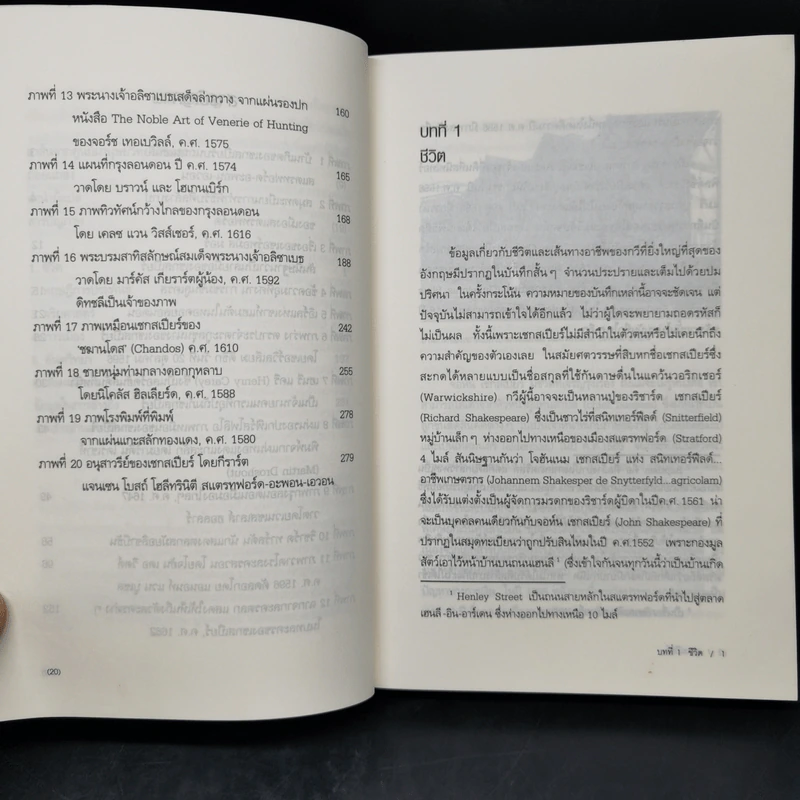 ภาพที่ 13 พระนางเจ้าอลิซาเบธเสด็จล่ากวาง จากแผ่นรองปก 160
หนังสือ The Noble Art of Venerie of Hunting
ของจอร์ช เทอเบวิลล์, ค.ศ. 1575
ภาพที่ 14 แผนที่กรุงลอนดอน ปี ค.ศ. 1574 165
วาดโดย บราวน์ และ โฮเกนเบิร์ก
ภาพที่ 15 ภาพทิวทัศน์กว้างไกลของกรุงลอนดอน 168
โดย เคลซ แวน วิสส์เชอร์, ค.ศ. 1616
ภาพที่ 16 พระบรมสาทิสลักษณ์สมเด็จพระนางเจ้าอลิซาเบธ 188
วาดโดย มาร์คัส เกียราร์ตผู้น้อง, ค.ศ. 1592
ดิทชลีเป็นเจ้าของภาพ
ภาพที่ 17 ภาพเหมือนเชกสเปียร์ของ 242
'ชฆานโดส' (Chandos) ค.ศ. 1610
ภาพที่ 18 ชายหนุ่มท่ามกลางดอกกุหลาบ 255
โดยนิโคลัส ฮิลเลียร์ด, ค.ศ. 1588
ภาพที่ 19 ภาพโรงพิมพ์ที่พิมพ์ 278
จากแผ่นแกะสลักทองแดง, ค.ศ. 1580
ภาพที่ 20 อนุสาวรีย์ของเชกสเปียร์ โดยกีราร์ต 279
แจนเซน โบสถ์ โฮลีทรินิตี สแตรทฟอร์ด-อะพอน-เอวอน
(20)
บทที่ 1
ชีวิต
ข้อมูลเกี่ยวกับชีวิตและเส้นทางอาชีพของกวีที่ยิ่งใหญ่ที่สุดของ
อังกฤษมีปรากฏในบันทึกสั้นๆ จำนวนประปรายและเต็มไปด้วยปม
ปริศนา ในครั้งกระโน้น ความหมายของบันทึกเหล่านี้อาจจะชัดเจน แต่
ปัจจุบันไม่สามารถเข้าใจได้อีกแล้ว ไม่ว่าผู้ใดจะพยายามถอดรหัสก็
ไม่เป็นผล ทั้งนี้เพราะเชกสเปียร์ไม่มีสำนึกในตัวตนหรือไม่เคยนึกถึง
ความสำคัญของตัวเองเลย ในสมัยศตวรรษที่สิบหกชื่อเชกสเปียร์ซึ่ง
สะกดได้หลายแบบเป็นชื่อสกุลที่ใช้กันดาษดื่นในแคว้นวอริกเชอร์
(Warwickshire) กวีผู้นี้อาจจะเป็นหลานปู่ของริชาร์ด เชกสเปียร์
(Richard Shakespeare) ซึ่งเป็นชาวไร่ที่สนิทเทอร์ฟีลด์ (Snitterfield)
หมู่บ้านเล็กๆ ห่างออกไปทางเหนือของเมืองสแตรทฟอร์ด (Stratford)
4 ไมล์ สันนิษฐานกันว่า โจฮันเนม เชกสเปียร์ แห่ง สนิทเทอร์ฟีลด์...
อาชีพเกษตรกร (Johannem Shakesper de Snytterfyld...agricolam)
ซึ่งได้รับแต่งตั้งเป็นผู้จัดการมรดกของริชาร์ดผู้บิดาในปีค.ศ. 1561 น่า
จะเป็นบุคคลคนเดียวกันกับจอห์น เชกสเปียร์ (John Shakespeare) ที่
ปรากฏในสมุดทะเบียนว่าถูกปรับสินไหมในปี ค.ศ.1552 เพราะกองมูล
สัตว์เอาไว้หน้าบ้านบนถนนเฮนลี ¹ (ซึ่งเข้าใจกันจนทุกวันนี้ว่าเป็นบ้านเกิด
¹ Henley Street เป็นถนนสายหลักในสแตรทฟอร์ดที่นำไปสู่ตลาด
เฮนลี -อิน-อาร์เดน ซึ่งห่างออกไปทางเหนือ 10 ไมล์
บทที่ 1 ชีวิต / 1